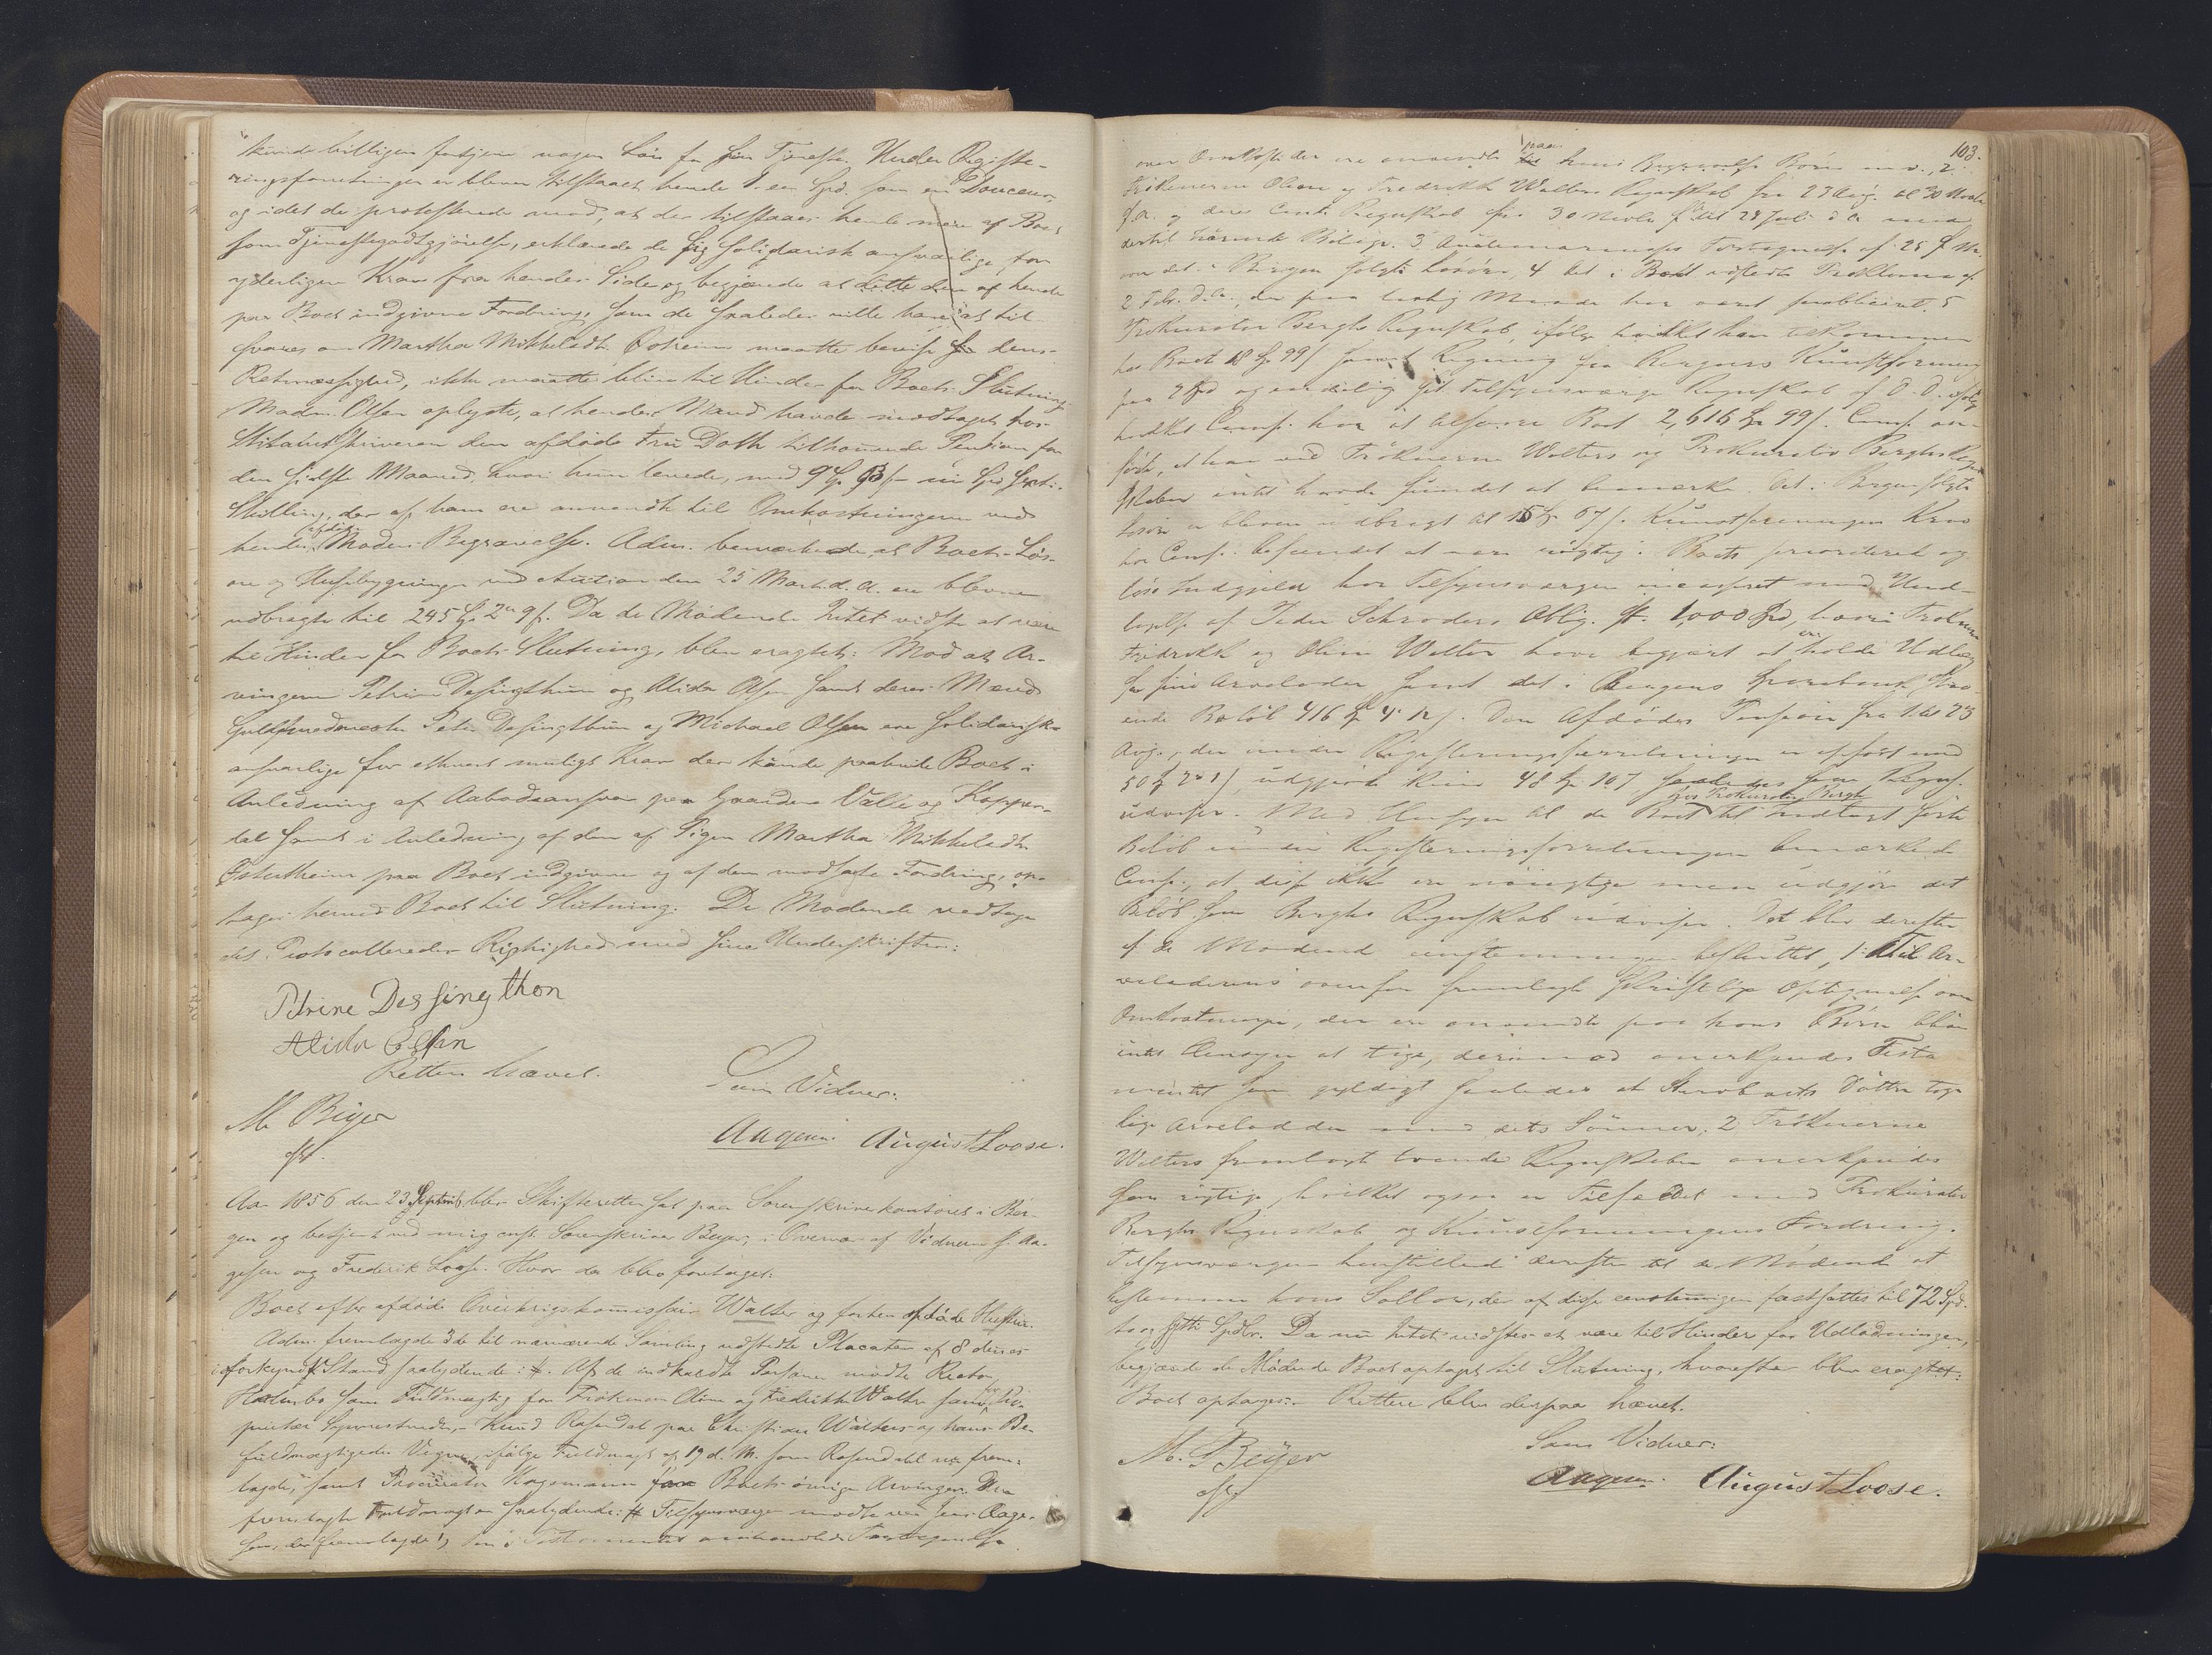 kunde billigen fortjene nogen Løn for sin Tjeneste. Under Registe-
ringsforretningen er bleven tilstaaet hende 1 een Spd. som en Douceur,
og idet de protesterede mod, at der tilstaaes hende mere af Boet
som Tjenestegodtgjørelse, erklærede de sig solidarisk ansvarlige for
yderligere Krav fra hendes Side og begjærede at dette den af hende
paa Boet indgivne Fordring, som de saaledes ville have at til
svare om Martha Mikkelsdtr maatte bevise dens
Retmæssighed, ikke maatte blive til Hinder for Boets Slutning.
Madm. Olsen oplyste, at hendes Mand havde modtaget hos
Stiftamtskriveren den afdøde Fru Doth tilkommende Pension for
den sidste Maaned, hvori hun levede, med 9
Skilling, der af ham ere anvendte til Omkostningerne ved
hendes afdøde Moders Begravelse. Adm. bemærkede at Boets Løs-
øre og Husebygninger ved Auction den 25 Marts d. A. ere blevne
udbragte til 245 Spd. 2 9 s. Da de Mødende Intet vidste at være
til Hinder for Boets Slutning, blev eragtet: Mod at Ar-
vingerne Petrine Dessingthun og Alida Olsen samt deres Mænd
Guldsmedmester Peter Dessingthun og Michael Olsen ere solidariske
ansvarlige for ethvert muligt Krav der kunde paahvile Boet i
Anledning af Aabodsansvar paa Gaarden Valle og Kopper-
dal samt i Anledning af den af Pigen Martha Mikkelsdtr
paa Boet indgivne og af dem modsagte Fordring, op-
tages herved Boet til Slutning. De Mødende vedtage
det Protocolleredes Rigtighed med sine Underskrifter:
Petrine Dessingthon
Alida Olsen
Retten hævet.
M. Beyer Som Vidner:
cst. Aagesen. August Loose.
Aar 1856 den 23 Septemb. blev Skifteretten sat paa Sorenskriverkontoret i Ber-
gen og betjent ved mig const. Sorenskriver Beyer, i Overvær af Vidnerne J. Aa-
gesen og Frederik Loose. Hvor da blev foretaget:
Boet efter afdøde Overkrigskommissair Walter og forhen afdøde Hustru.
Adm. fremlagde 3de til nærværende Samling udstedte Placater af 8 dennes
i forkyndt Stand saalydende: #. Af de indkaldte Personer mødte Rector
Holmbo som Fuldmægtig for Frøknerne Oline og Fredrikke Walter samt for Pro-
prietær Knud Rosendal paa Christian Walters og hans Be-
fuldmægtigedes Vegne, ifølge Fuldmagt af 19 d. M. som Rosendal frem-
lagde, samt Procurator Hagemann for Boets øvrige Arvinger. Den
fremlagte Fuldmagt er saalydende: # Tilsynsværgen mødte ved Jens Aage-
sen, der fremlagde 1, den i Testamentet omhandlede Fortegnelse
103.
over Omkost. der ere anvendte paa hans Børn m. v., 2
Frøknerne Oline og Fredrikke Walters Regnskab fra 23 Aug. til 30 Novbr
f. A. og deres Cont. Regnskab fra 30 Novbr f. A. til 28 Juli d. A. med
dertil hørende Bilage. 3 Auctionarius's Fortegnelse af 25 f. M.
over det i Bergen solgte Løsøre, 4 det i Boet udstedte Proklama af
2 Feb. d. A., der paa lovlig Maade har været publiceret. 5
Prokurator Berghs Regnskab, ifølge hvilket han tilkommer
hos Boet 18 Spd. 99 s. samt Regning fra Bergens Kunstforening
paa 2 Spd og endelig sit Tilsynsværge Regnskab af D. D. ifølge
hvilket Comp. har at tilsvare Boet 2,616 Spd 99 s. Comp. an-
førte, at han ved Frøknerne Walters og Prokurator Berghs Regn-
skaber intet havde fundet at bemærke. Det i Bergen solgte
Løsøre er bleven udbragt til 67 s. Kunstforeningens Krav
har Comp. befundet at være rigtig. Boets prioriterede og
løse Indgjæld har Tilsynsværgen incasseret med Und-
tagelse af Peder Schrøders Oblig. st. 1,000 Spd, hvori Frøknerne
Fredrikke og Oline Walter have begjært at erholde Udlæg
for sine Arvelodder samt det i Bergens Sparebank staa-
ende Beløb 416 Spd 4 12 s. Den Afdødes Pension fra 1 til 23
Aug., der under Registreringsforretningen er opført med
50 Spd 2 1 s, udgjorde kun 48 Spd 107 saaledes som Regnsk.
udviser. Med Hensyn til de Boet hos Prokurator Bergh til Indtægt førte
Beløb under Registreringsforretningen bemærkede
Comp., at disse ikke ere nøiagtige men udgjøre det
Beløb som Berghs Regnskab udviser. Det blev derefter
af de Mødende eenstemmigen besluttet, 1: til Ar-
veladerens ovenfor fremlagte skriftlige Optegnelse over
Omkostninger, der ere anvendte paa hans Børn bliver
intet Hensyn at tage, derimod anerkjendes Testa
mentet som gyldigt saaledes at Sterboets Døttre tage
lige Arvelodder med dets Sønner. 2 Frøknerne
Walters fremlagte tvende Regnskaber anerkjendes
som rigtige, hvilket ogsaa er Tilfældet med Prokurator
Berghs Regnskab og Kunstforeningens Fordring.
Tilsynsværgen henstillede derefter til de Mødende at
bestemme hans Sallær, der af disse eenstemmigen fastsattes til 72 Spd.
to og sytti Spdlr. Da nu Intet vidstes at være til Hinder for Udlodningen,
begjærede de Mødende Boet optaget til Slutning, hvorefter blev eragtet:
Boet optages. Retten blev derpaa hævet.
M. Beyer Som Vidner:
cst. Aagesen. August Loose.